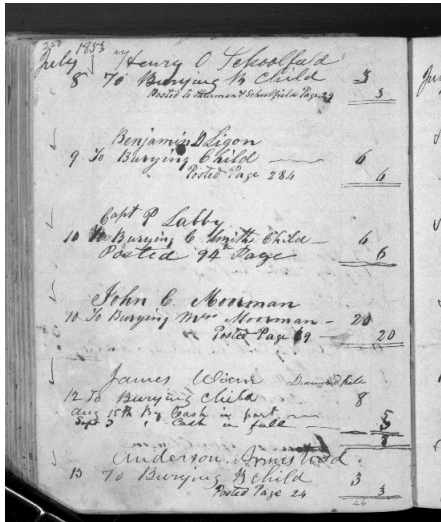 350
July 1853 Mr Henry O Schoolfield
8 To Burying B Child 3
Posted to Saurman & Schoolfield Page 29 3
Benjamin D Ligon
9 To Burying Child 6
Posted Page 284 6
Capt P Labby
10 To Burying C Smiths Child 6
Posted 94 Page 6
John C Moorman
10 To Burying Mrs Moorman 20
Posted Page 69 20
James
12 To Burying Child 8
Aug 15th By Cash in part 5
Sept 3 " Cash in full 3
8
Anderson Armistead
13 To Burying B Child 3
Posted Page 24 3